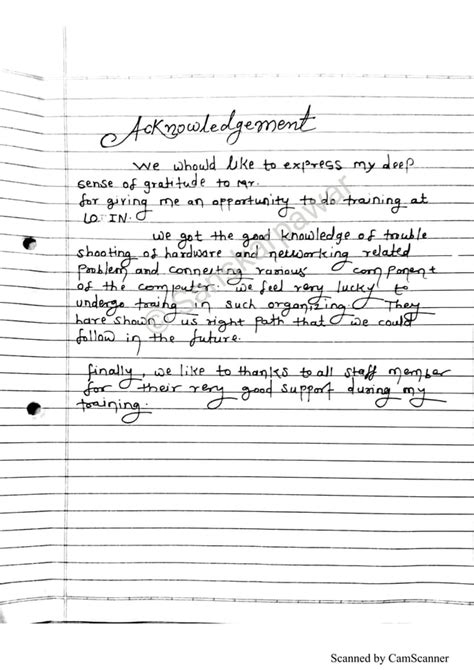 Acknowledgement
We whould like to express my deep
sense of gratitude to Mr.
for giving me an opportunity to do training at
LO. IN.
We got the good knowledge of trouble
shooting of hardware and networking related
Problem and connecting various component
of the computer. We feel very lucky to
undergo traing in such organizing. They
have shown us right path that we could
follow in the future.
Finally, we like to thanks to all staff member
for their very good support during my
training.
© Sanskarpawar
Scanned by CamScanner